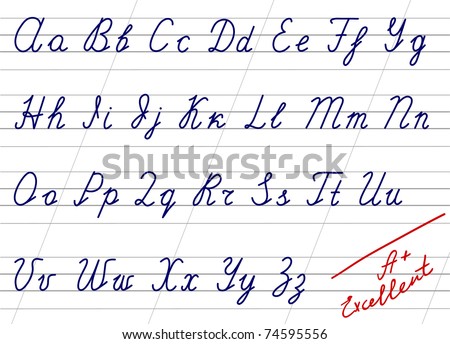 Aa Bb Cc Dd Ee Ff Gg
Hh Ii Jj Kk Ll Mm Nn
Oo Pp Qq Rr Ss Tt Uu
Vv Ww Xx Yy Zz
A+
Excellent
www.shutterstock.com · 74595556